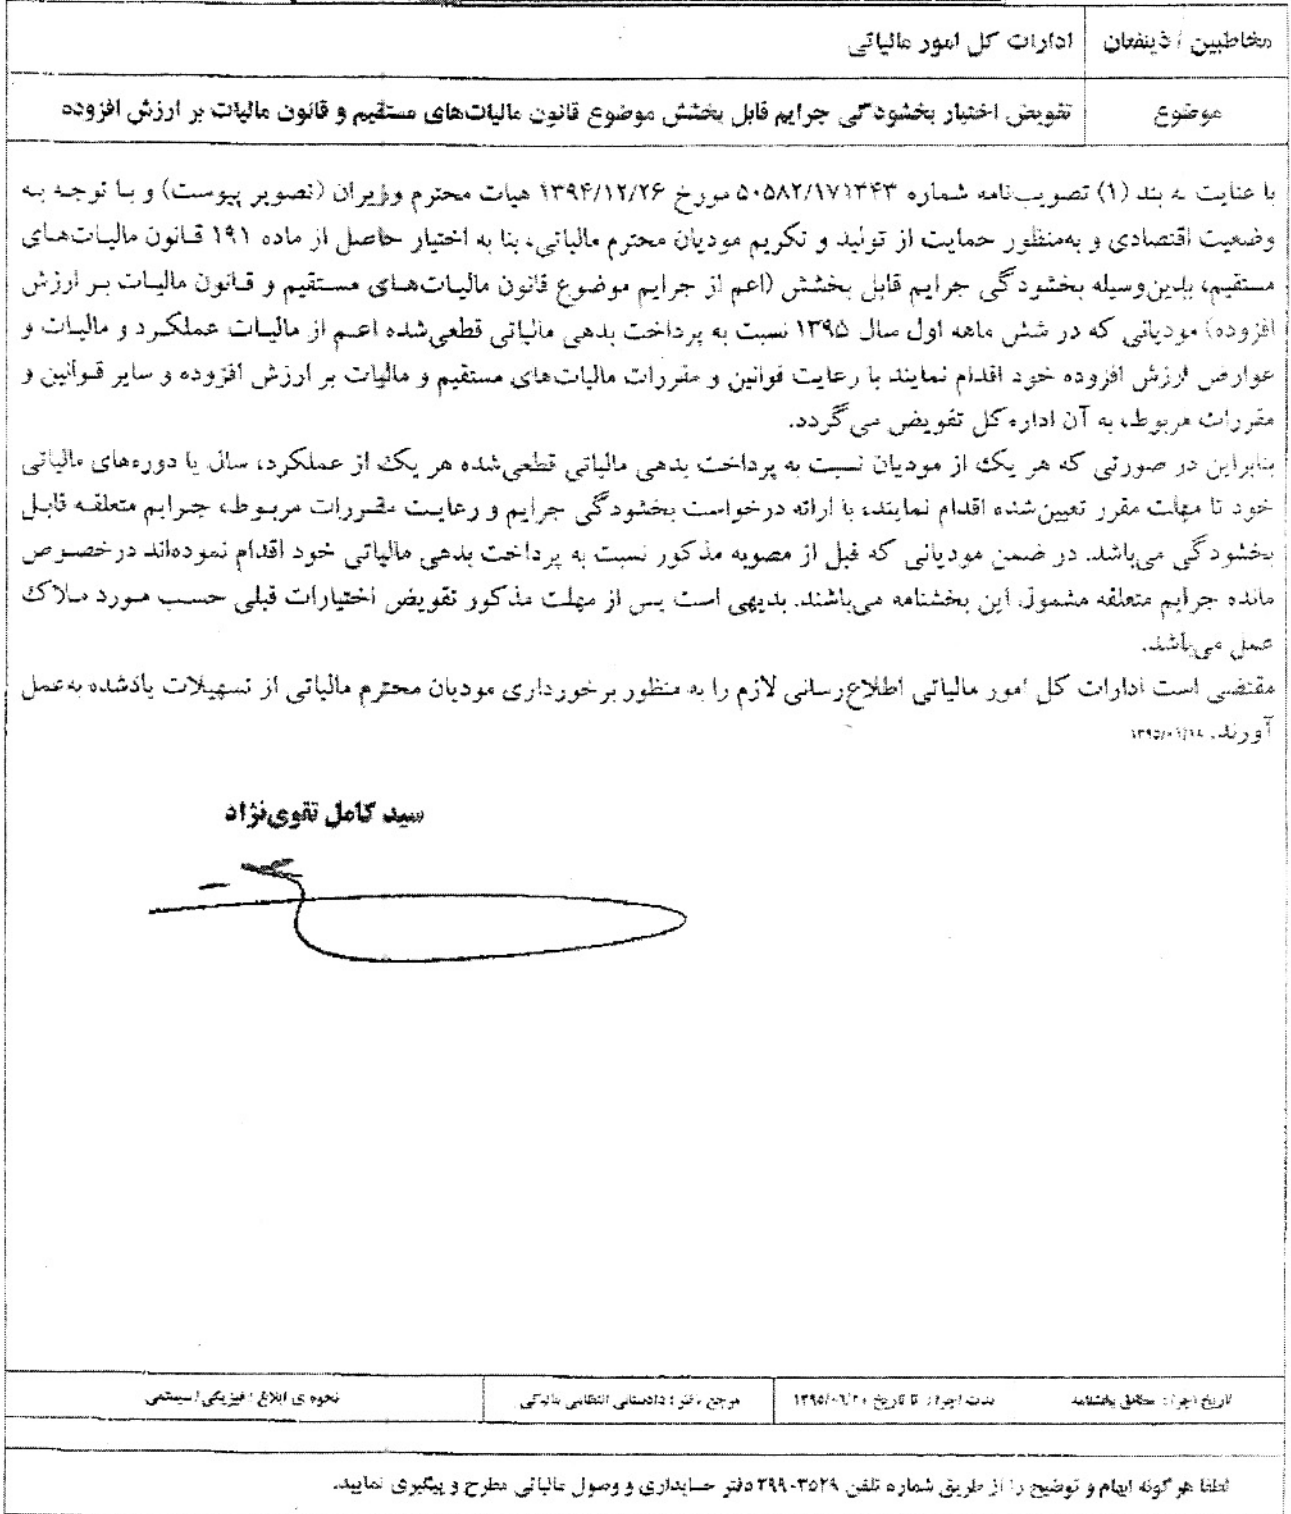 مخاطبین / ذینفعان
ادارات کل امور مالیاتی
موضوع
تفویض اختیار بخشودگی جرایم قابل بخشش موضوع قانون مالیات‌های مستقیم و قانون مالیات بر ارزش افزوده
با عنایت به بند (۱) تصویب‌نامه شماره ۵۰۵۸۲/۱۷۱۳۴۳ مورخ ۱۳۹۴/۱۲/۲۶ هیات محترم وزیران (تصویر پیوست) و با توجه به
وضعیت اقتصادی و به‌منظور حمایت از تولید و تکریم مودیان محترم مالیاتی، بنا به اختیار حاصل از ماده ۱۹۱ قانون مالیات‌های
مستقیم، بدین‌وسیله بخشودگی جرایم قابل بخشش (اعم از جرایم موضوع قانون مالیات‌های مستقیم و قانون مالیات بر ارزش
افزوده) مودیانی که در شش ماهه اول سال ۱۳۹۵ نسبت به پرداخت بدهی مالیاتی قطعی‌شده اعم از مالیات عملکرد و مالیات و
عوارض ارزش افزوده خود اقدام نمایند با رعایت قوانین و مقررات مالیات‌های مستقیم و مالیات بر ارزش افزوده و سایر قوانین و
مقررات مربوط، به آن اداره کل تفویض می‌گردد.
بنابراین در صورتی که هر یک از مودیان نسبت به پرداخت بدهی مالیاتی قطعی‌شده هر یک از عملکرد، سال یا دوره‌های مالیاتی
خود تا مهلت مقرر تعیین‌شده اقدام نمایند، با ارائه درخواست بخشودگی جرایم و رعایت مقررات مربوط، جرایم متعلقه قابل
بخشودگی می‌باشد. در ضمن مودیانی که قبل از مصوبه مذکور نسبت به پرداخت بدهی مالیاتی خود اقدام نموده‌اند درخصوص
مانده جرایم متعلقه مشمول این بخشنامه می‌باشند. بدیهی است پس از مهلت مذکور تفویض اختیارات قبلی حسب مورد ملاک
عمل می‌باشد.
مقتضی است ادارات کل امور مالیاتی اطلاع‌رسانی لازم را به منظور برخورداری مودیان محترم مالیاتی از تسهیلات یادشده به‌عمل
آورند. ۱۳۹۵/۰۱/۱۸
سید کامل تقوی‌نژاد
تاریخ اجرا: مطابق بخشنامه
مدت اجرا: تا تاریخ ۱۳۹۵/۰۶/۳۰
مرجع ناظر: دادستانی انتظامی مالیاتی
نحوه ی ابلاغ: فیزیکی/سیستمی
لطفا هر گونه ابهام و توضیح را از طریق شماره تلفن ۳۵۲۹-۳۹۹۰ دفتر حسابداری و وصول مالیاتی مطرح و پیگیری نمایید.